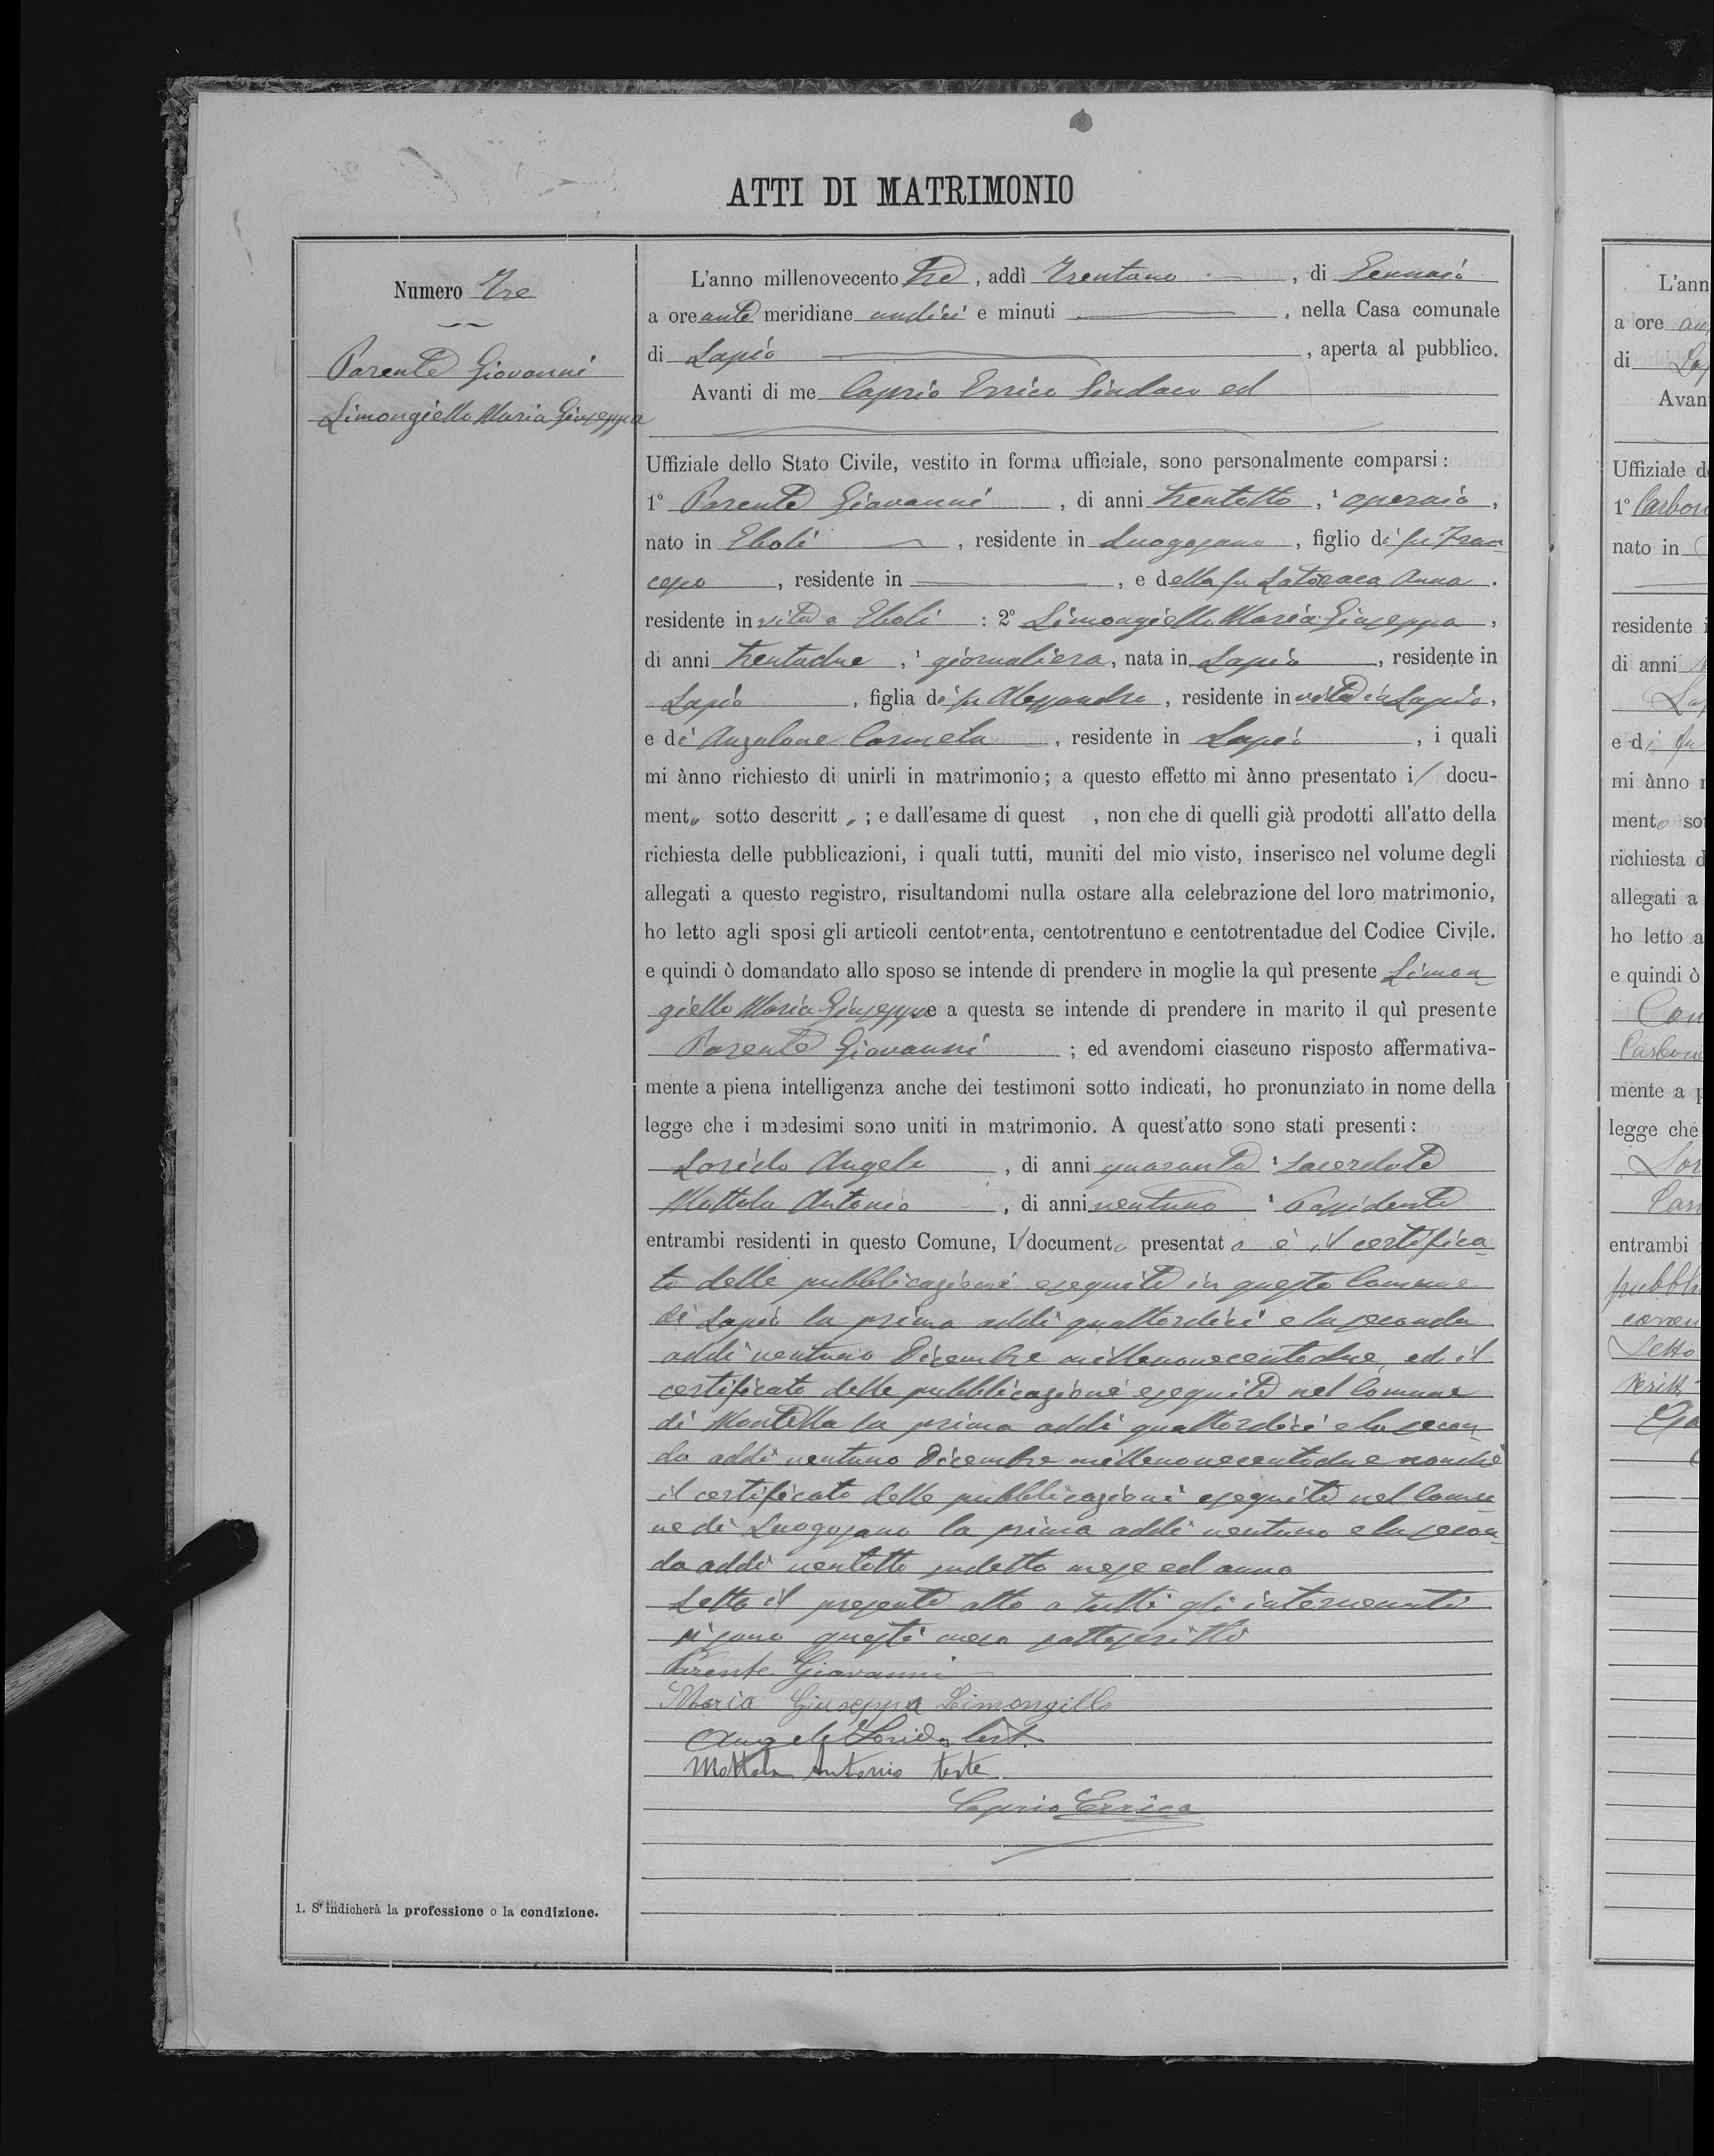 ATTI DI MATRIMONIO
Numero Tre
Parente Giovanni
Limongiello Maria Giuseppa
L'anno millenovecento tre, addì trentuno, di Gennaio
a ore ante meridiane undici e minuti, nella Casa comunale
di Lapio, aperta al pubblico.
Avanti di me Caprio Errico Sindaco ed
Uffiziale dello Stato Civile, vestito in forma ufficiale, sono personalmente comparsi:
1° Parente Giovanni, di anni trentotto, ¹ operaio,
nato in Eboli, residente in Luogosano, figlio di fu Fran
cesco, residente in, e della fu Latoraca Anna.
residente in vita a Eboli : 2° Limongiello Maria Giuseppa,
di anni trentadue, ¹ giornaliera, nata in Lapio, residente in
Lapio, figlia di fu Alessandro, residente in vita in Lapio,
e di Anzalone Carmela, residente in Lapio, i quali
mi ànno richiesto di unirli in matrimonio; a questo effetto mi ànno presentato i/ docu-
ment„ sotto descritt „; e dall'esame di quest , non che di quelli già prodotti all'atto della
richiesta delle pubblicazioni, i quali tutti, muniti del mio visto, inserisco nel volume degli
allegati a questo registro, risultandomi nulla ostare alla celebrazione del loro matrimonio,
ho letto agli sposi gli articoli centotrenta, centotrentuno e centotrentadue del Codice Civile.
e quindi ò domandato allo sposo se intende di prendere in moglie la quì presente Limon
giello Maria Giuseppa e a questa se intende di prendere in marito il quì presente
Parente Giovanni ; ed avendomi ciascuno risposto affermativa-
mente a piena intelligenza anche dei testimoni sotto indicati, ho pronunziato in nome della
legge che i medesimi sono uniti in matrimonio. A quest'atto sono stati presenti:
Lorido Angelo, di anni quaranta ¹ Sacerdote
Mottola Antonio, di anni ventuno ¹ Possidente
entrambi residenti in questo Comune, I/ documento presentato è il certifica
to delle pubblicazioni eseguite in questo Comune
di Lapio la prima addì quattordici e la seconda
addì ventuno Dicembre millenovecentodue, ed il
certificato delle pubblicazioni eseguite nel Comune
di Montella la prima addì quattordici e la secon
da addì ventuno Dicembre millenovecentodue nonchè
il certificato delle pubblicazioni eseguite nel Comu
ne di Luogosano la prima addì ventuno e la secon
da addì ventotto sudetto mese ed anno
Letto il presente atto a tutti gli intervenuti
si sono questi meco sottoscritti
Parente Giovanni
Maria Giuseppa Limongillo
Angelo Lorido test.
Mottola Antonio teste
Caprio Errico
1. S'indicherà la professione o la condizione.
L'ann
a ore an
di Lap
Avan
Uffiziale d
1° Carbon
nato in
residente i
di anni
La
e di fu
mi ànno r
mento so
richiesta d
allegati a
ho letto a
e quindi ò
Carbone
mente a p
legge che
Lor
entrambi
pubbli
Letto